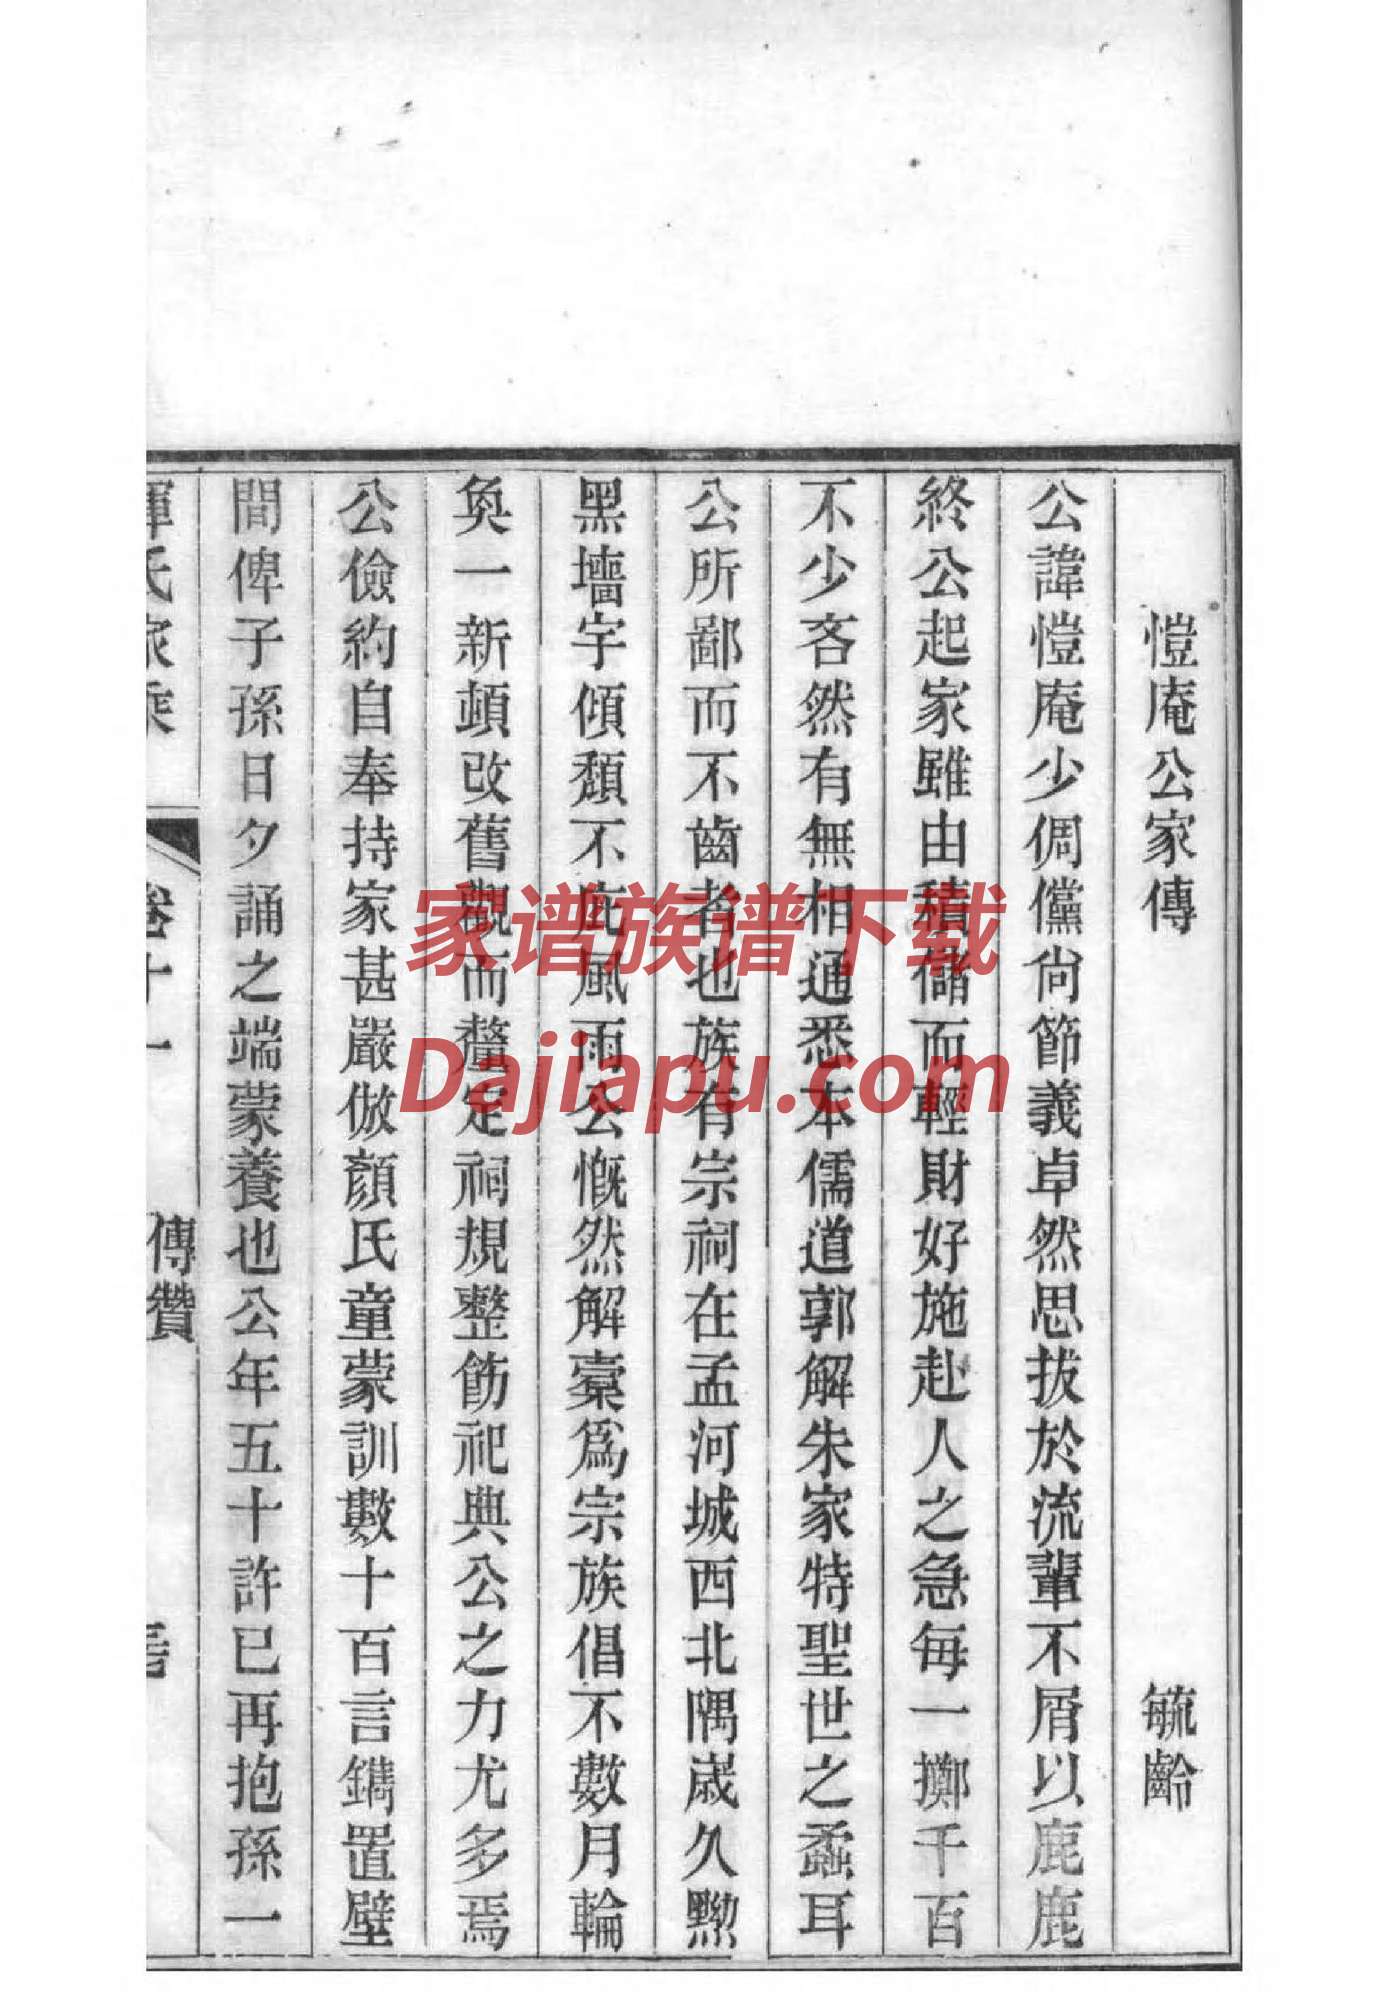 愷庵公家傳　毓齡
公諱愷庵少倜儻尙節義卓然思拔於流輩不屑以鹿鹿
終公起家雖由積儲而輕財好施赴人之急每一擲千百
不少吝然有無相通悉本儒道郭解朱家特聖世之蠹耳
公所鄙而不齒者也族有宗祠在孟河城西北隅歲久黝
黑墻宇傾頹不庇風雨公慨然解橐爲宗族倡不數月輪
奐一新頓改舊觀而釐定祠規整飭祀典公之力尤多焉
公儉約自奉持家甚嚴倣顏氏童蒙訓數十百言鐫置壁
間俾子孫日夕誦之端蒙養也公年五十許已再抱孫一
惲氏家乘　卷十一　傳贊
家谱族谱下载
Dajiapu.com